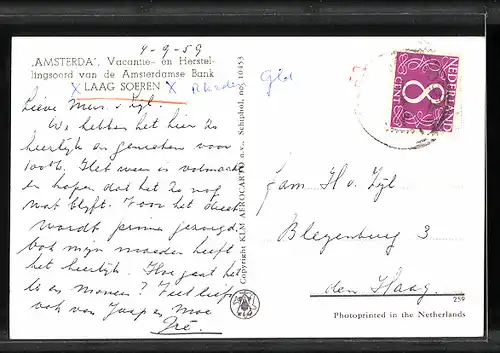 4-9-59
„AMSTERDA', Vacantie- en Herstel-
lingsoord van de Amsterdamse Bank
X LAAG SOEREN X Rheden Gld
Lieve Mevr. v Zyl.
We hebben het hier zo
heerlijk en genieten voor
100%. Het weer is volmaakt
en hopen dat het zo nog
wat blyft. Voor het dieet
wordt prima gezorgd.
Ook mijn moeder heeft
het heerlijk. Hoe gaat het
U en Maneer? Veel liefs
ook van Jaap en Moe
Copyright KLM AEROCARTO n.v., Schiphol, no. 10453
NEDERLAND
8
CENT
fam H v. Zyl
Blezenburg 3
den Haag.
259
Photoprinted in the Netherlands